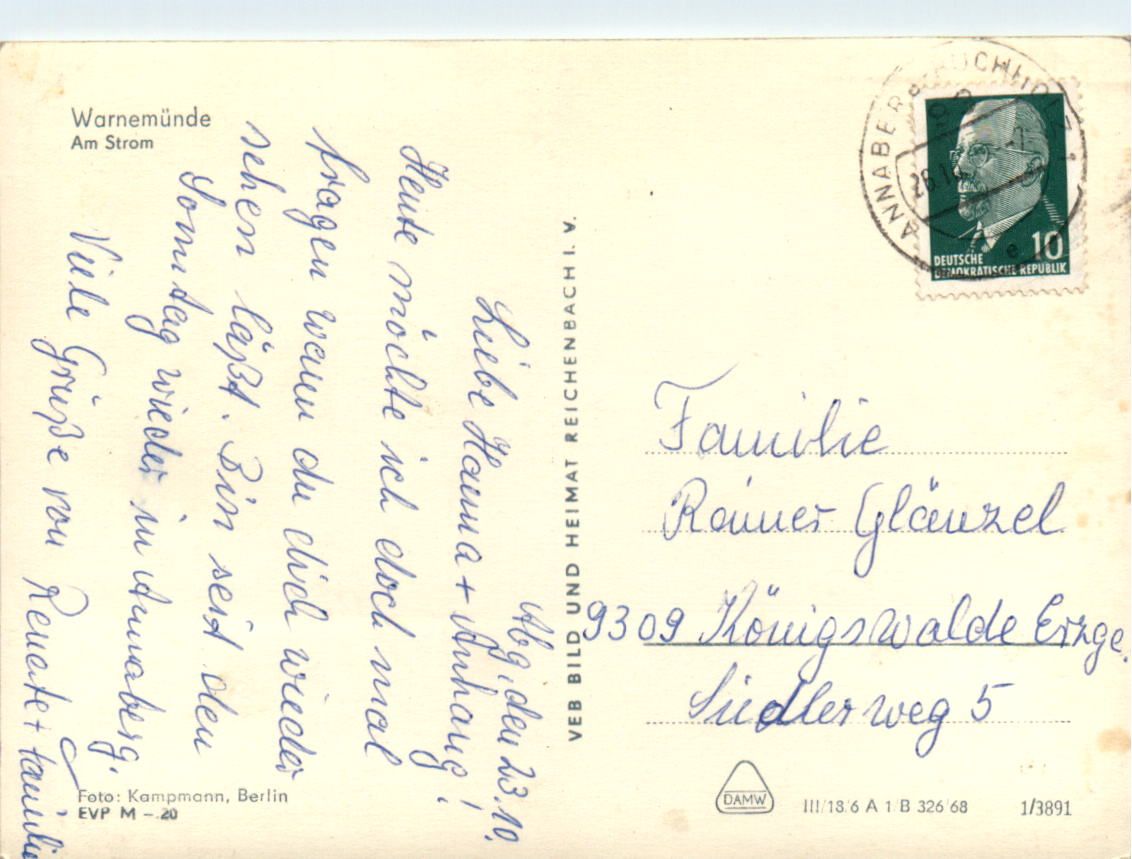 Warnemünde
Am Strom
Abg., den 23.10.
Liebe Hanna + Anhang!
Heute möchte ich doch mal
fragen wann du dich wieder
sehen läßt. Bin seit den
Sonntag wieder in Annaberg.
Viele Grüße von Renate + Familie
Foto: Kampmann, Berlin
EVP M -.20
VEB BILD UND HEIMAT REICHENBACH I. V.
ANNABERG-BUCHHOLZ 1
DEUTSCHE
DEMOKRATISCHE REPUBLIK
10
Familie
Rainer Glänzel
9309 Königswalde Erzge.
Siedlerweg 5
DAMW
III/18/6 A 1 B 326/68
1/3891